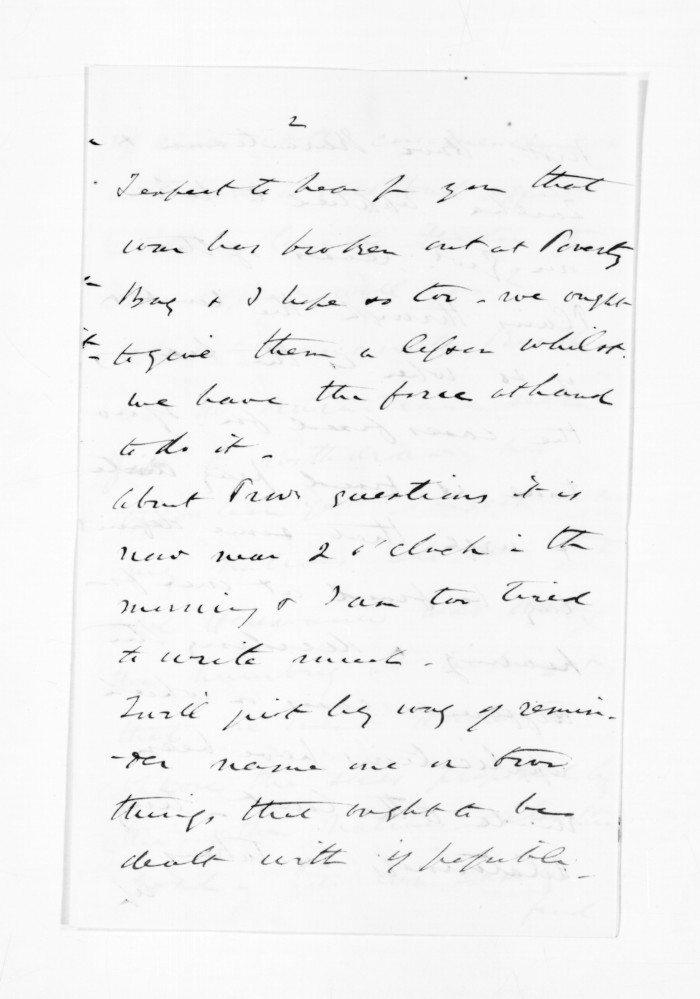 2
I expect to hear fr you that
war has broken out at Poverty
Bay & I hope so too - we ought
to give them a lesson whilst
we have the force at hand
to do it -
About Prov questions it is
now near 2 o'clock in the
morning & I am too tired
to write much -
I will just by way of remin-
-der name one or two
things that ought to be
dealt with if possible -